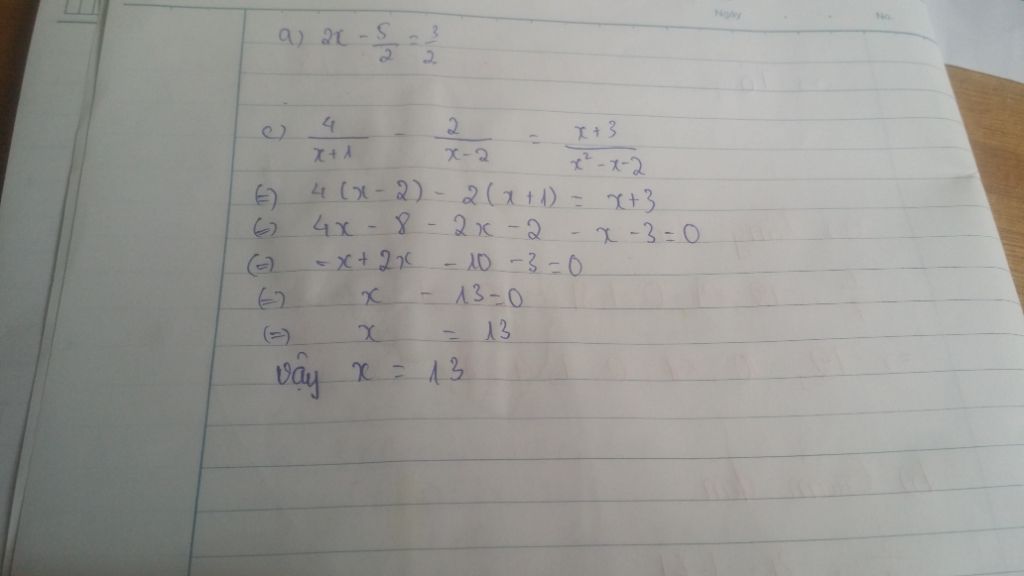 Ngày . . No.
a) 2x - 5/2 = 3/2
c) 4/(x+1) - 2/(x-2) = (x+3)/(x² - x - 2)
(=) 4(x-2) - 2(x+1) = x+3
(=) 4x - 8 - 2x - 2 - x - 3 = 0
(=) -x + 2x - 10 - 3 = 0
(=) x - 13 = 0
(=) x = 13
vậy x = 13